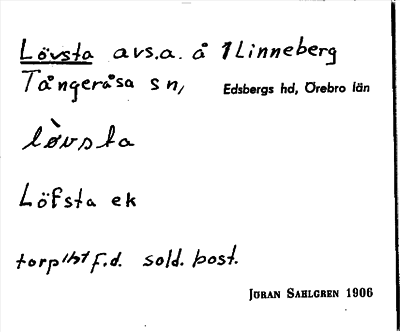 Lövsta avs.a. å 1 Linneberg
Tångeråsa sn, Edsbergs hd, Örebro län
lö̀vsta
Löfsta ek
torp 1/57 f.d. sold. bost.
JÖRAN SAHLGREN 1906